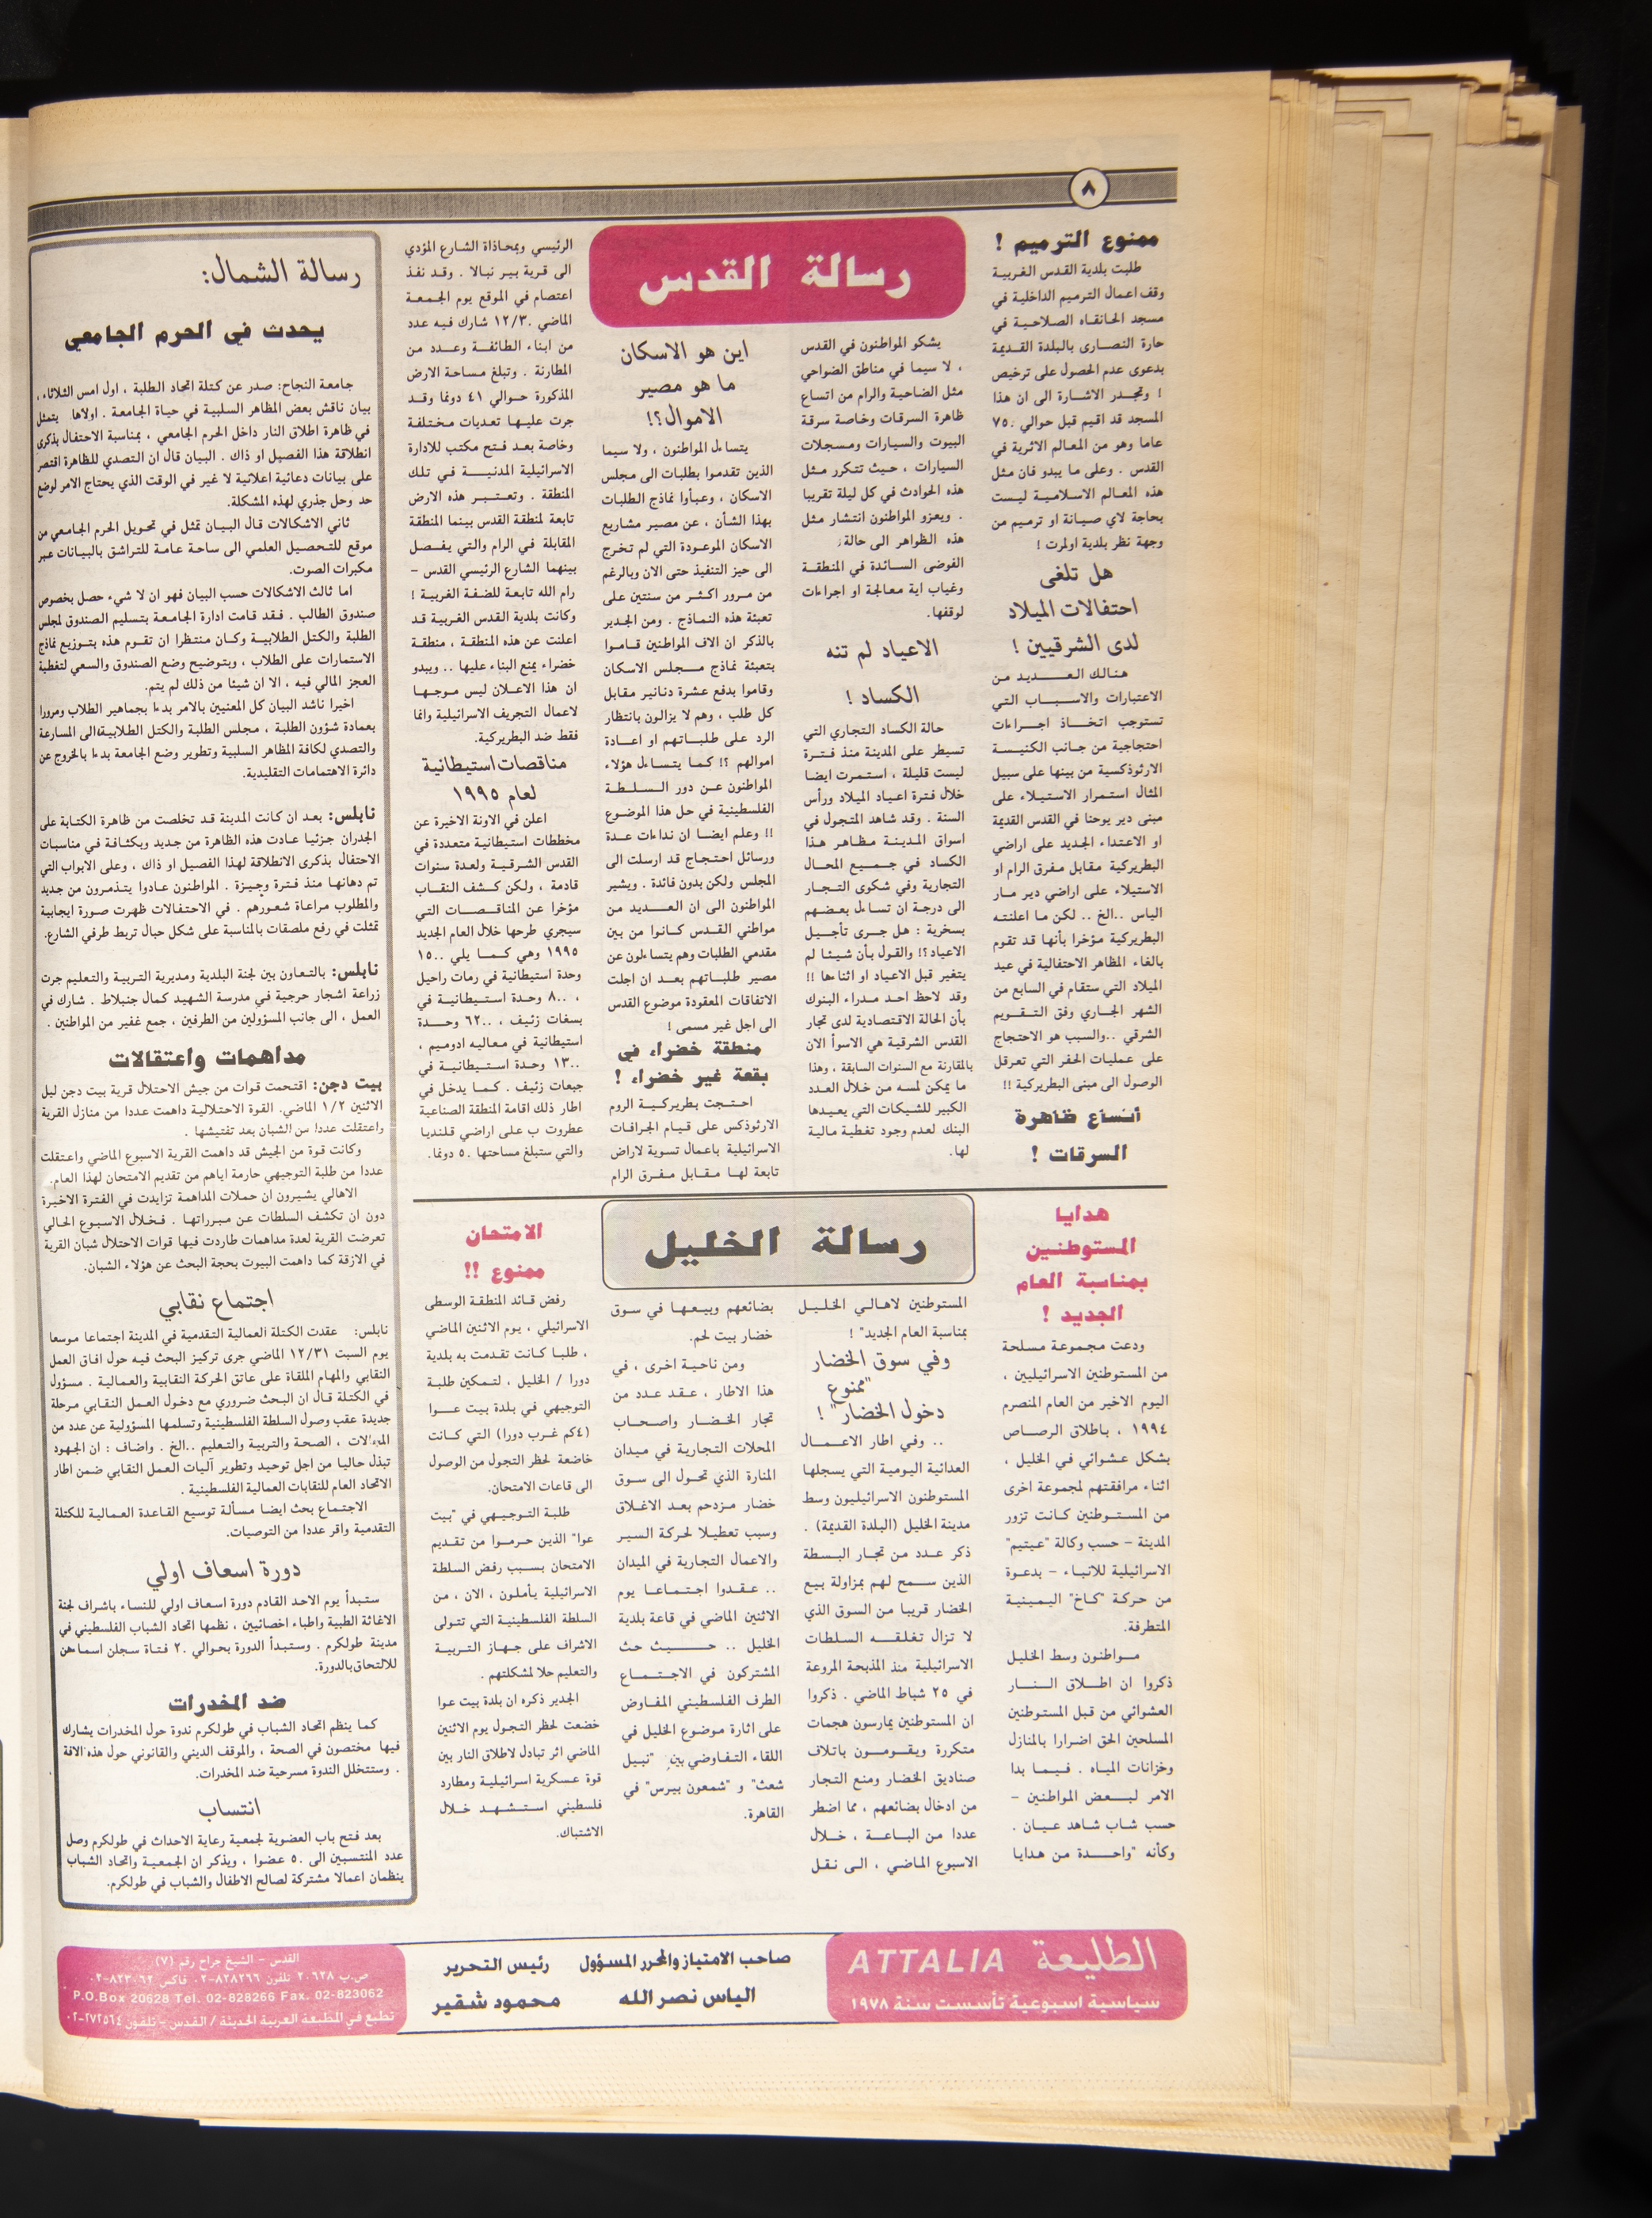 ٨
رسالة القدس
ممنوع الترميم !
طلبت بلدية القدس الغربية
وقف اعمال الترميم الداخلية في
مسجد الخانقاه الصلاحية في
حارة النصارى بالبلدة القديمة
بدعوى عدم الحصول على ترخيص
! وتجدر الاشارة الى ان هذا
المسجد قد اقيم قبل حوالي ٧٥٠
عاما وهو من المعالم الاثرية في
القدس . وعلى ما يبدو فان مثل
هذه المعالم الاسلامية ليست
بحاجة لاي صيانة او ترميم من
وجهة نظر بلدية اولمرت !
هل تلغى
احتفالات الميلاد
لدى الشرقيين !
هنالك العديد من
الاعتبارات والاسباب التي
تستوجب اتخاذ اجراءات
احتجاجية من جانب الكنيسة
الارثوذكسية من بينها على سبيل
المثال استمرار الاستيلاء على
مبنى دير يوحنا في القدس القديمة
او الاعتداء الجديد على اراضي
البطريركية مقابل مفرق الرام او
الاستيلاء على اراضي دير مار
الياس ..الخ .. لكن ما اعلنته
البطريركية مؤخرا بأنها قد تقوم
بالغاء المظاهر الاحتفالية في عيد
الميلاد التي ستقام في السابع من
الشهر الجاري وفق التقويم
الشرقي ..والسبب هو الاحتجاج
على عمليات الحفر التي تعرقل
الوصول الى مبنى البطريركية !!
أتساع ظاهرة
السرقات !
يشكو المواطنون في القدس
، لا سيما في مناطق الضواحي
مثل الضاحية والرام من اتساع
ظاهرة السرقات وخاصة سرقة
البيوت والسيارات ومسجلات
السيارات ، حيث تتكرر مثل
هذه الحوادث في كل ليلة تقريبا
. ويعزو المواطنون انتشار مثل
هذه الظواهر الى حالة
الفوضى السائدة في المنطقة
وغياب اية معالجة او اجراءات
لوقفها.
الاعياد لم تنه
الكساد !
حالة الكساد التجاري التي
تسيطر على المدينة منذ فترة
ليست قليلة ، استمرت ايضا
خلال فترة اعياد الميلاد ورأس
السنة . وقد شاهد المتجول في
اسواق المدينة مظاهر هذا
الكساد في جميع المحال
التجارية وفي شكوى التجار
الى درجة ان تساءل بعضهم
بسخرية : هل جرى تأجيل
الاعياد؟! والقول بأن شيئا لم
يتغير قبل الاعياد او اثناءها !!
وقد لاحظ احد مدراء البنوك
بأن الحالة الاقتصادية لدى تجار
القدس الشرقية هي الاسوأ الان
بالمقارنة مع السنوات السابقة ، وهذا
ما يمكن لمسه من خلال العدد
الكبير للشيكات التي يعيدها
البنك لعدم وجود تغطية مالية
لها.
اين هو الاسكان
ما هو مصير
الاموال؟!
يتساءل المواطنون ، ولا سيما
الذين تقدموا بطلبات الى مجلس
الاسكان ، وعبأوا نماذج الطلبات
بهذا الشأن ، عن مصير مشاريع
الاسكان الموعودة التي لم تخرج
الى حيز التنفيذ حتى الان وبالرغم
من مرور اكثر من سنتين على
تعبئة هذه النماذج . ومن الجدير
بالذكر ان الاف المواطنين قاموا
بتعبئة نماذج مجلس الاسكان
وقاموا بدفع عشرة دنانير مقابل
كل طلب ، وهم لا يزالون بانتظار
الرد على طلباتهم او اعادة
اموالهم ؟! كما يتساءل هؤلاء
المواطنون عن دور السلطة
الفلسطينية في حل هذا الموضوع
!! وعلم ايضا ان نداءات عدة
ورسائل احتجاج قد ارسلت الى
المجلس ولكن بدون فائدة . ويشير
المواطنون الى ان العديد من
مواطني القدس كانوا من بين
مقدمي الطلبات وهم يتساءلون عن
مصير طلباتهم بعد ان اجلت
الاتفاقات المعقودة موضوع القدس
الى اجل غير مسمى !
منطقة خضراء في
بقعة غير خضراء !
احتجت بطريركية الروم
الارثوذكس على قيام الجرافات
الاسرائيلية باعمال تسوية لاراض
تابعة لها مقابل مفرق الرام
الرئيسي وبمحاذاة الشارع المؤدي
الى قرية بير نبالا . وقد نفذ
اعتصام في الموقع يوم الجمعة
الماضي ١٢/٣٠ شارك فيه عدد
من ابناء الطائفة وعدد من
المطارنة . وتبلغ مساحة الارض
المذكورة حوالي ٤١ دونما وقد
جرت عليها تعديات مختلفة
وخاصة بعد فتح مكتب للادارة
الاسرائيلية المدنية في تلك
المنطقة . وتعتبر هذه الارض
تابعة لمنطقة القدس بينما المنطقة
المقابلة في الرام والتي يفصل
بينهما الشارع الرئيسي القدس –
رام الله تابعة للضفة الغربية !
وكانت بلدية القدس الغربية قد
اعلنت عن هذه المنطقة ، منطقة
خضراء يمنع البناء عليها .. ويبدو
ان هذا الاعلان ليس موجها
لاعمال التجريف الاسرائيلية وانما
فقط ضد البطريركية.
مناقصات استيطانية
لعام ١٩٩٥
اعلن في الاونة الاخيرة عن
مخططات استيطانية متعددة في
القدس الشرقية ولعدة سنوات
قادمة ، ولكن كشف النقاب
مؤخرا عن المناقصات التي
سيجري طرحها خلال العام الجديد
١٩٩٥ وهي كما يلي ١٥٠٠
وحدة استيطانية في رمات راحيل
، ٨٠٠ وحدة استيطانية في
بسغات زئيف ، ٦٢٠٠ وحدة
استيطانية في معاليه ادوميم ،
١٣٠٠ وحدة استيطانية في
جبعات زئيف . كما يدخل في
اطار ذلك اقامة المنطقة الصناعية
عطروت ب على اراضي قلنديا
والتي ستبلغ مساحتها ٥٠ دونما.
رسالة الخليل
هدايا
المستوطنين
بمناسبة العام
الجديد !
ودعت مجموعة مسلحة
من المستوطنين الاسرائيليين ،
اليوم الاخير من العام المنصرم
١٩٩٤ ، باطلاق الرصاص
بشكل عشوائي في الخليل ،
اثناء مرافقتهم لمجموعة اخرى
من المستوطنين كانت تزور
المدينة – حسب وكالة "عيتيم"
الاسرائيلية للانباء – بدعوة
من حركة "كاخ" اليمينية
المتطرفة.
مواطنون وسط الخليل
ذكروا ان اطلاق النار
العشوائي من قبل المستوطنين
المسلحين الحق اضرارا بالمنازل
وخزانات المياه . فيما بدا
الامر لبعض المواطنين –
حسب شاب شاهد عيان .
وكأنه "واحدة من هدايا
المستوطنين لاهالي الخليل
بمناسبة العام الجديد" !
وفي سوق الخضار
"ممنوع
دخول الخضار" !
.. وفي اطار الاعمال
العدائية اليومية التي يسجلها
المستوطنون الاسرائيليون وسط
مدينة الخليل (البلدة القديمة) .
ذكر عدد من تجار البسطة
الذين سمح لهم بمزاولة بيع
الخضار قريبا من السوق الذي
لا تزال تغلقه السلطات
الاسرائيلية منذ المذبحة المروعة
في ٢٥ شباط الماضي . ذكروا
ان المستوطنين يمارسون هجمات
متكررة ويقومون باتلاف
صناديق الخضار ومنع التجار
من ادخال بضائعهم ، مما اضطر
عددا من الباعة ، خلال
الاسبوع الماضي ، الى نقل
بضائعهم وبيعها في سوق
خضار بيت لحم.
ومن ناحية اخرى ، في
هذا الاطار ، عقد عدد من
تجار الخضار واصحاب
المحلات التجارية في ميدان
المنارة الذي تحول الى سوق
خضار مزدحم بعد الاغلاق
وسبب تعطيلا لحركة السير
والاعمال التجارية في الميدان
.. عقدوا اجتماعا يوم
الاثنين الماضي في قاعة بلدية
الخليل .. حيث حث
المشتركون في الاجتماع
الطرف الفلسطيني المفاوض
على اثارة موضوع الخليل في
اللقاء التفاوضي بين "نبيل
شعث" و "شمعون بيرس" في
القاهرة.
الامتحان
ممنوع !!
رفض قائد المنطقة الوسطى
الاسرائيلي ، يوم الاثنين الماضي
، طلبا كانت تقدمت به بلدية
دورا / الخليل ، لتمكين طلبة
التوجيهي في بلدة بيت عوا
(٤كم غرب دورا) التي كانت
خاضعة لحظر التجول من الوصول
الى قاعات الامتحان.
طلبة التوجيهي في "بيت
عوا" الذين حرموا من تقديم
الامتحان بسبب رفض السلطة
الاسرائيلية يأملون ، الان ، من
السلطة الفلسطينية التي تتولى
الاشراف على جهاز التربية
والتعليم حلا لمشكلتهم .
الجدير ذكره ان بلدة بيت عوا
خضعت لحظر التجول يوم الاثنين
الماضي اثر تبادل لاطلاق النار بين
قوة عسكرية اسرائيلية ومطارد
فلسطيني استشهد خلال
الاشتباك.
رسالة الشمال:
يحدث في الحرم الجامعي
جامعة النجاح: صدر عن كتلة اتحاد الطلبة ، اول امس الثلاثاء ،
بيان ناقش بعض المظاهر السلبية في حياة الجامعة . اولاها يتمثل
في ظاهرة اطلاق النار داخل الحرم الجامعي ، بمناسبة الاحتفال بذكرى
انطلاقة هذا الفصيل او ذاك . البيان قال ان التصدي للظاهرة اقتصر
على بيانات دعائية اعلانية لا غير في الوقت الذي يحتاج الامر لوضع
حد وحل جذري لهذه المشكلة.
ثاني الاشكالات قال البيان تمثل في تحويل الحرم الجامعي من
موقع للتحصيل العلمي الى ساحة عامة للتراشق بالبيانات عبر
مكبرات الصوت.
اما ثالث الاشكالات حسب البيان فهو ان لا شيء حصل بخصوص
صندوق الطالب . فقد قامت ادارة الجامعة بتسليم الصندوق لمجلس
الطلبة والكتل الطلابية وكان منتظرا ان تقوم هذه بتوزيع نماذج
الاستمارات على الطلاب ، وبتوضيح وضع الصندوق والسعي لتغطية
العجز المالي فيه ، الا ان شيئا من ذلك لم يتم.
اخيرا ناشد البيان كل المعنيين بالامر بدءا بجماهير الطلاب ومرورا
بعمادة شؤون الطلبة ، مجلس الطلبة والكتل الطلابية الى المسارعة
والتصدي لكافة المظاهر السلبية وتطوير وضع الجامعة بدءا بالخروج عن
دائرة الاهتمامات التقليدية.
نابلس: بعد ان كانت المدينة قد تخلصت من ظاهرة الكتابة على
الجدران جزئيا عادت هذه الظاهرة من جديد وبكثافة في مناسبات
الاحتفال بذكرى الانطلاقة لهذا الفصيل او ذاك ، وعلى الابواب التي
تم دهانها منذ فترة وجيزة . المواطنون عادوا يتذمرون من جديد
والمطلوب مراعاة شعورهم . في الاحتفالات ظهرت صورة ايجابية
تمثلت في رفع ملصقات بالمناسبة على شكل حبال تربط طرفي الشارع.
نابلس: بالتعاون بين لجنة البلدية ومديرية التربية والتعليم جرت
زراعة اشجار حرجية في مدرسة الشهيد كمال جنبلاط . شارك في
العمل ، الى جانب المسؤولين من الطرفين ، جمع غفير من المواطنين .
مداهمات واعتقالات
بيت دجن: اقتحمت قوات من جيش الاحتلال قرية بيت دجن ليل
الاثنين ١/٢ الماضي. القوة الاحتلالية داهمت عددا من منازل القرية
واعتقلت عددا من الشبان بعد تفتيشها .
وكانت قوة من الجيش قد داهمت القرية الاسبوع الماضي واعتقلت
عددا من طلبة التوجيهي حارمة اياهم من تقديم الامتحان لهذا العام.
الاهالي يشيرون ان حملات المداهمة تزايدت في الفترة الاخيرة
دون ان تكشف السلطات عن مبرراتها . فخلال الاسبوع الحالي
تعرضت القرية لعدة مداهمات طاردت فيها قوات الاحتلال شبان القرية
في الازقة كما داهمت البيوت بحجة البحث عن هؤلاء الشبان.
اجتماع نقابي
نابلس: عقدت الكتلة العمالية التقدمية في المدينة اجتماعا موسعا
يوم السبت ١٢/٣١ الماضي جرى تركيز البحث فيه حول افاق العمل
النقابي والمهام الملقاة على عاتق الحركة النقابية والعمالية . مسؤول
في الكتلة قال ان البحث ضروري مع دخول العمل النقابي مرحلة
جديدة عقب وصول السلطة الفلسطينية وتسلمها المسؤولية عن عدد من
المجالات ، الصحة والتربية والتعليم ..الخ . واضاف : ان الجهود
تبذل حاليا من اجل توحيد وتطوير آليات العمل النقابي ضمن اطار
الاتحاد العام للنقابات العمالية الفلسطينية .
الاجتماع بحث ايضا مسألة توسيع القاعدة العمالية للكتلة
التقدمية واقر عددا من التوصيات.
دورة اسعاف اولي
ستبدأ يوم الاحد القادم دورة اسعاف اولي للنساء باشراف لجنة
الاغاثة الطبية واطباء اخصائيين ، نظمها اتحاد الشباب الفلسطيني في
مدينة طولكرم . وستبدأ الدورة بحوالي ٢٠ فتاة سجلن اسماءهن
للالتحاق بالدورة.
ضد المخدرات
كما ينظم اتحاد الشباب في طولكرم ندوة حول المخدرات يشارك
فيها مختصون في الصحة ، والموقف الديني والقانوني حول هذه الافة
. وستتخلل الندوة مسرحية ضد المخدرات.
انتساب
بعد فتح باب العضوية لجمعية رعاية الاحداث في طولكرم وصل
عدد المنتسبين الى ٥٠ عضوا ، ويذكر ان الجمعية واتحاد الشباب
ينظمان اعمالا مشتركة لصالح الاطفال والشباب في طولكرم.
الطليعة ATTALIA
سياسية اسبوعية تأسست سنة ١٩٧٨
صاحب الامتياز والمحرر المسؤول
الياس نصر الله
رئيس التحرير
محمود شقير
القدس – الشيخ جراح رقم (٧)
ص.ب ٢٠٦٢٨ تلفون ٨٢٨٢٦٦-٠٢ فاكس ٨٢٣٠٦٢-٠٢
P.O.Box 20628 Tel. 02-828266 Fax. 02-823062
تطبع في المطبعة العربية الحديثة / القدس – تلفون ٢٧٢٥٦٤-٠٢